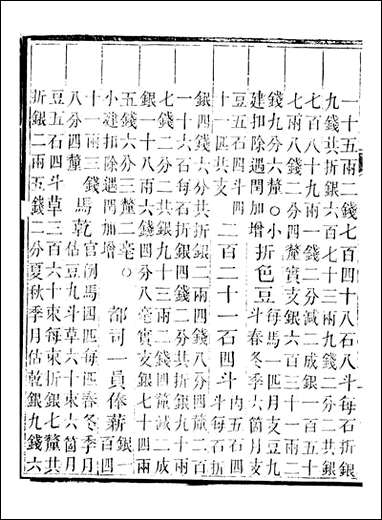 一十五兩二錢七百四十八石八斗每石折銀
九錢共折銀六百七十三兩九錢二分二共銀
七百八十九兩一錢二分減二成銀一百五十
七兩八錢二分四釐實支銀六百三十一兩二
錢九分六釐○小
建扣除遇閏加增
折色豆
每馬一匹月支豆九
斗春冬季六箇月支
豆五石四斗四
十一匹共支
二百二十一石四斗
內五石四
斗每石折
銀四錢六分共折銀二兩四錢八分四釐二百
一十六石每石折銀四錢二分共折銀九十兩
七錢二分二共銀九十三兩二錢四釐減二成
銀一十八兩六錢四分八毫實支銀七十四兩
五錢六分三釐二毫○
小建扣除遇閏加增
都司一員俸薪
銀一
百四
十一兩三錢
八分四釐
馬乾
官例馬四匹每匹春冬季月
估豆九斗草六十束六箇月
豆五石四斗草三百六十束每束折銀七釐共
折銀二兩五錢二分夏秋季月估乾銀九錢六